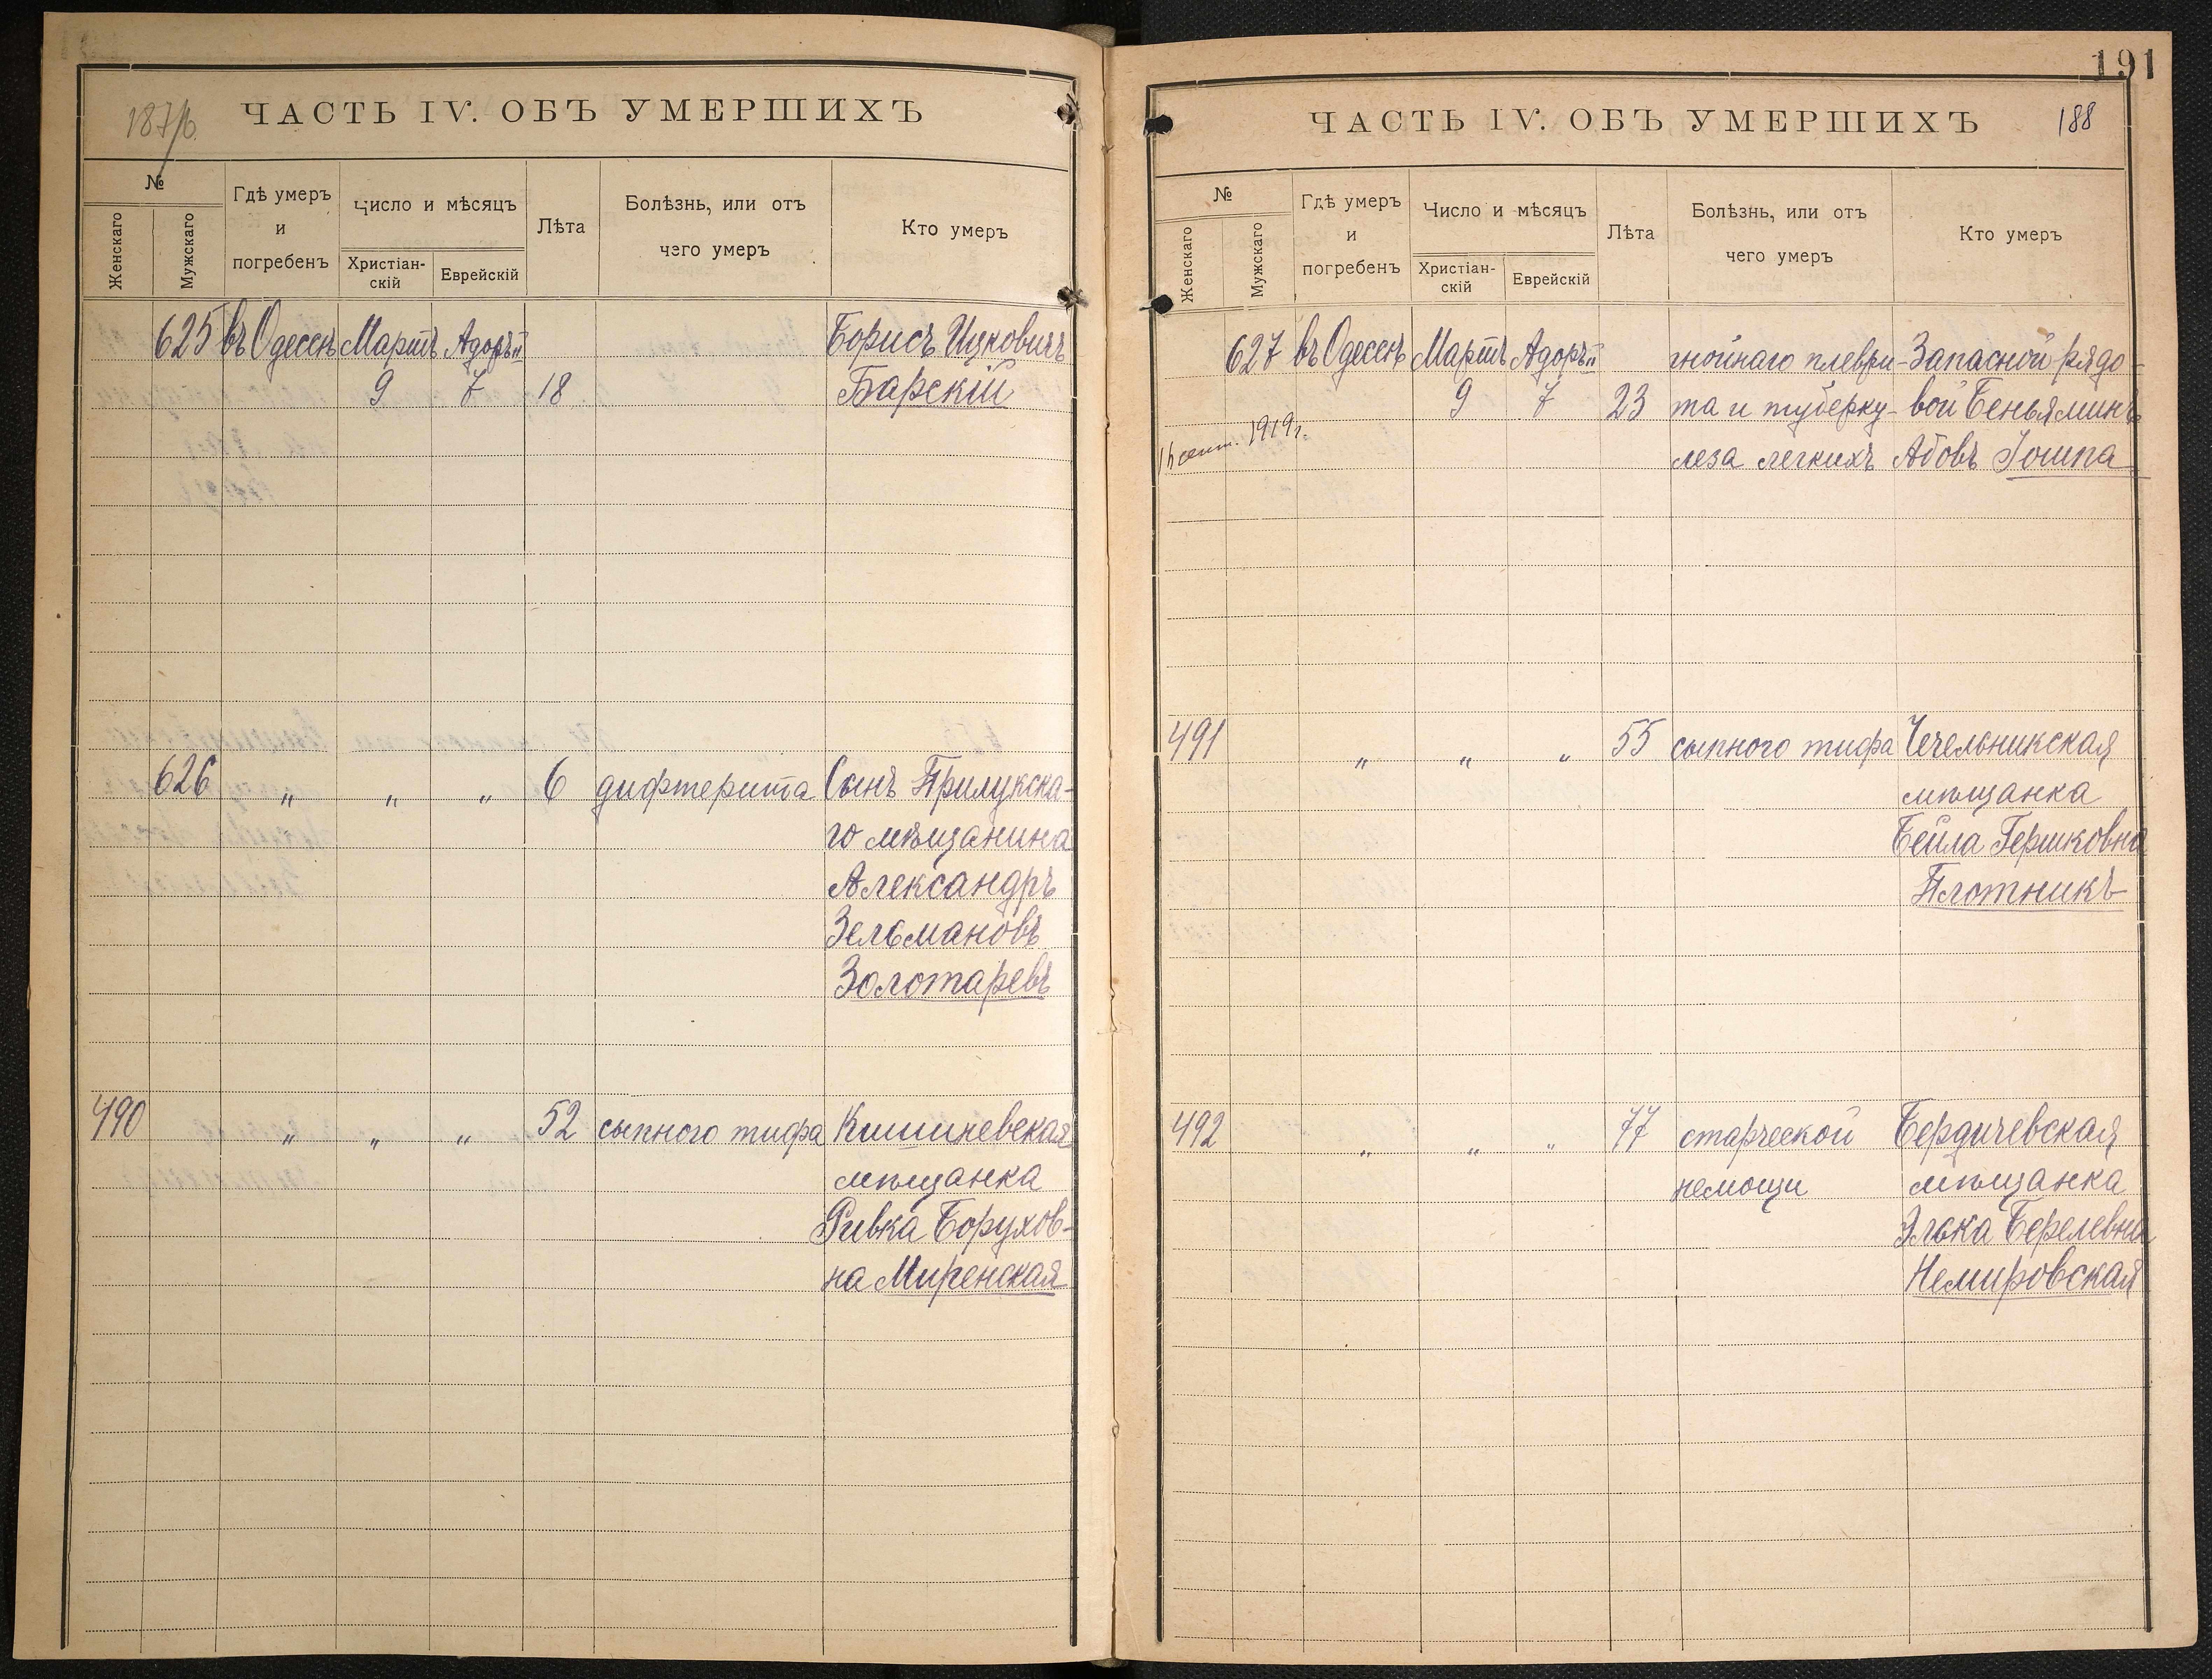 187/б.
ЧАСТЬ IV. ОБЪ УМЕРШИХЪ
№
Женскаго
Мужскаго
Гдѣ умеръ
и
погребенъ
Число и мѣсяцъ
Христіан-
скій
Еврейскій
Лѣта
Болѣзнь, или отъ
чего умеръ
Кто умеръ
625 въ Одессѣ Мартъ Адоръ II Борисъ Ицковичъ
9 7 18 Барскій
626 " " " 6 дифтерита Сынъ Прилукска-
го мѣщанина
Александръ
Зельмановъ
Золотаревъ
490 " " " 52 сыпного тифа Кишиневская
мѣщанка
Ривка Борухов-
на Миренская
191
ЧАСТЬ IV. ОБЪ УМЕРШИХЪ 188
№
Женскаго
Мужскаго
Гдѣ умеръ
и
погребенъ
Число и мѣсяцъ
Христіан-
скій
Еврейскій
Лѣта
Болѣзнь, или отъ
чего умеръ
Кто умеръ
627 въ Одессѣ Мартъ Адоръ II гнойнаго плеври- Запасной рядо-
9 7 23 та и туберку- вой Беньяминъ
сент. 1919 г.
леза легкихъ Абовъ Іошпа
491 " " " 55 сыпного тифа Чечельникская
мѣщанка
Бейла Гершковна
Плотникъ
492 " " " 77 старческой Бердичевская
немощи мѣщанка
Элька Берелевна
Немировская